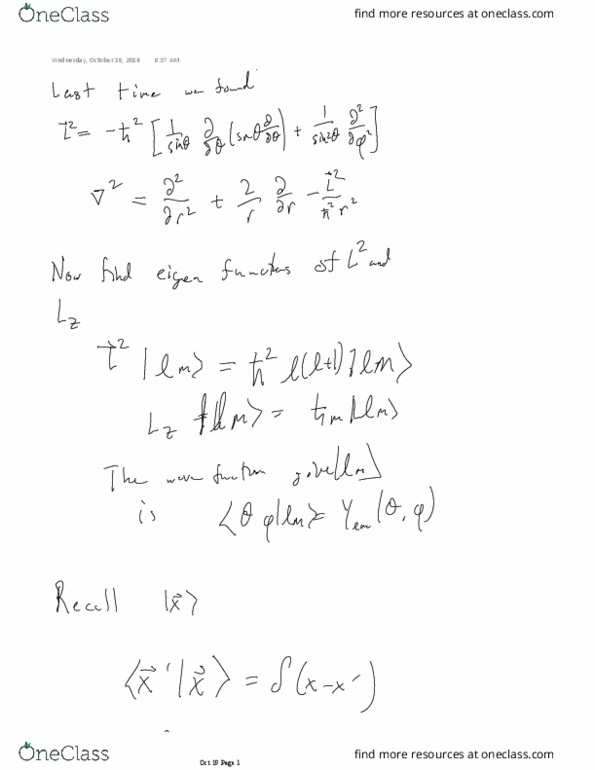 OneClass find more resources at oneclass.com
Wednesday, October 19, 2016 8:37 AM
Last time we found
L⃗² = -ħ² [1/sinθ ∂/∂θ (sinθ ∂/∂θ) + 1/sin²θ ∂²/∂φ²]
∇² = ∂²/∂r² + 2/r ∂/∂r - L⃗²/ħ²r²
Now find eigen functions of L² and
L_z
L⃗² |lm> = ħ² l(l+1) |lm>
L_z |lm> = ħm |lm>
The wave function |lm>
is <θφ|lm> = Y_lm(θ,φ)
Recall |x⃗>
<x⃗'|x⃗> = δ(x-x')
OneClass Oct 19 Page 1 find more resources at oneclass.com